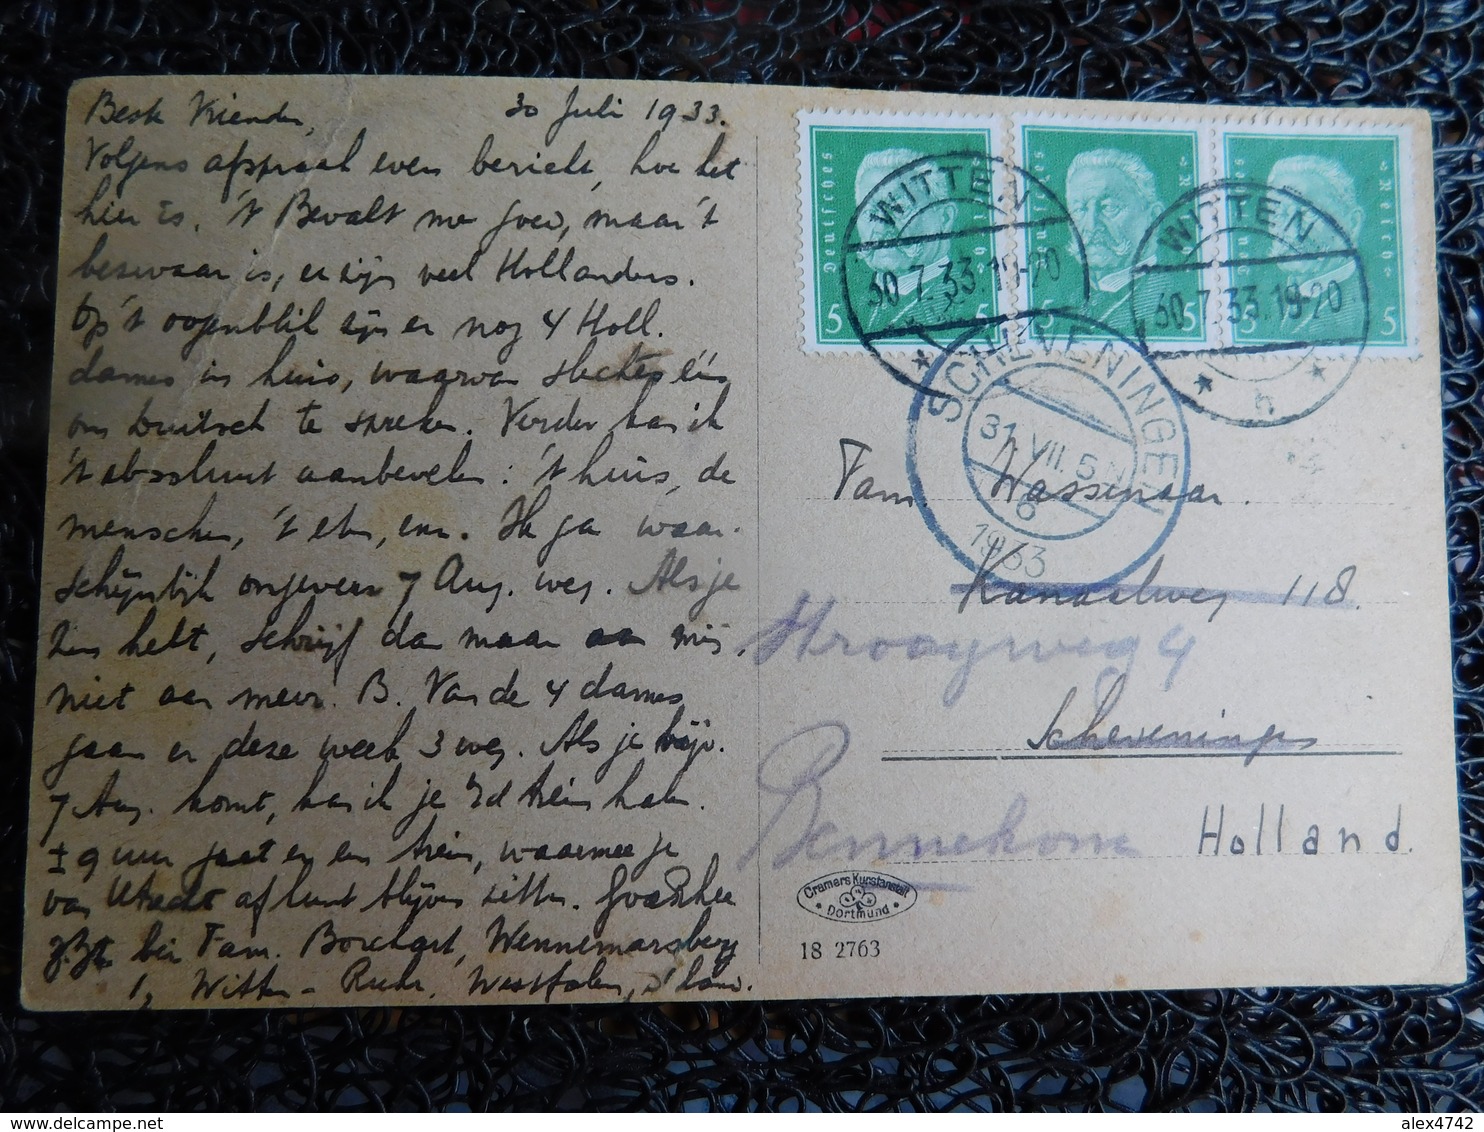 Beste Vrienden, 30 Juli 1933.
Volgens afspraak even bericht, hoe het
hier is. 't Bevalt me goed, maar 't
bezwaar is, er zijn veel Hollanders.
Op 't oogenblik zijn er nog 4 Holl.
dames in huis, waarvan slechts één
om Duitsch te spreken. Verder kan ik
't absoluut aanbevelen: 't huis, de
menschen, 't eten, enz. Ik ga waar-
schijnlijk ongeveer 7 Aug. weg. Als je
zin hebt, schrijf dan maar aan mij,
niet aan mevr. B. Van de 4 dames
gaan er deze week 3 weg. Als je bijv.
7 Aug. komt, kan ik je v/d trein halen.
± 9 uur gaat er een trein, waarmee je
van Utrecht af kunt blijven zitten.
bei Fam. Borchert, Wennemarsberg
1, Witten - Ruhr, Westfalen, D'land.
Deutsches Reich
5
Deutsches Reich
5
Deutsches Reich
5
WITTEN
30.7.33.19-20
WITTEN
30.7.33.19-20
h
SCHEVENINGEN
31.VII.5N
6
1933
Fam. Wassenaar.
Kanaalweg 118.
4
Scheveningen
Bennekom
Holland.
Cramers Kunstanstalt
Dortmund
18 2763
alex4742